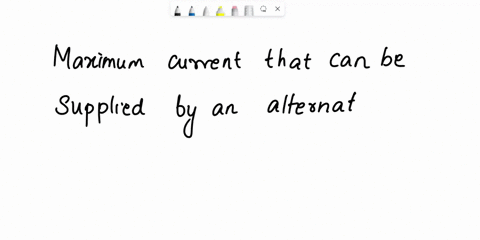 Maximum current that can be
Supplied by an alternat